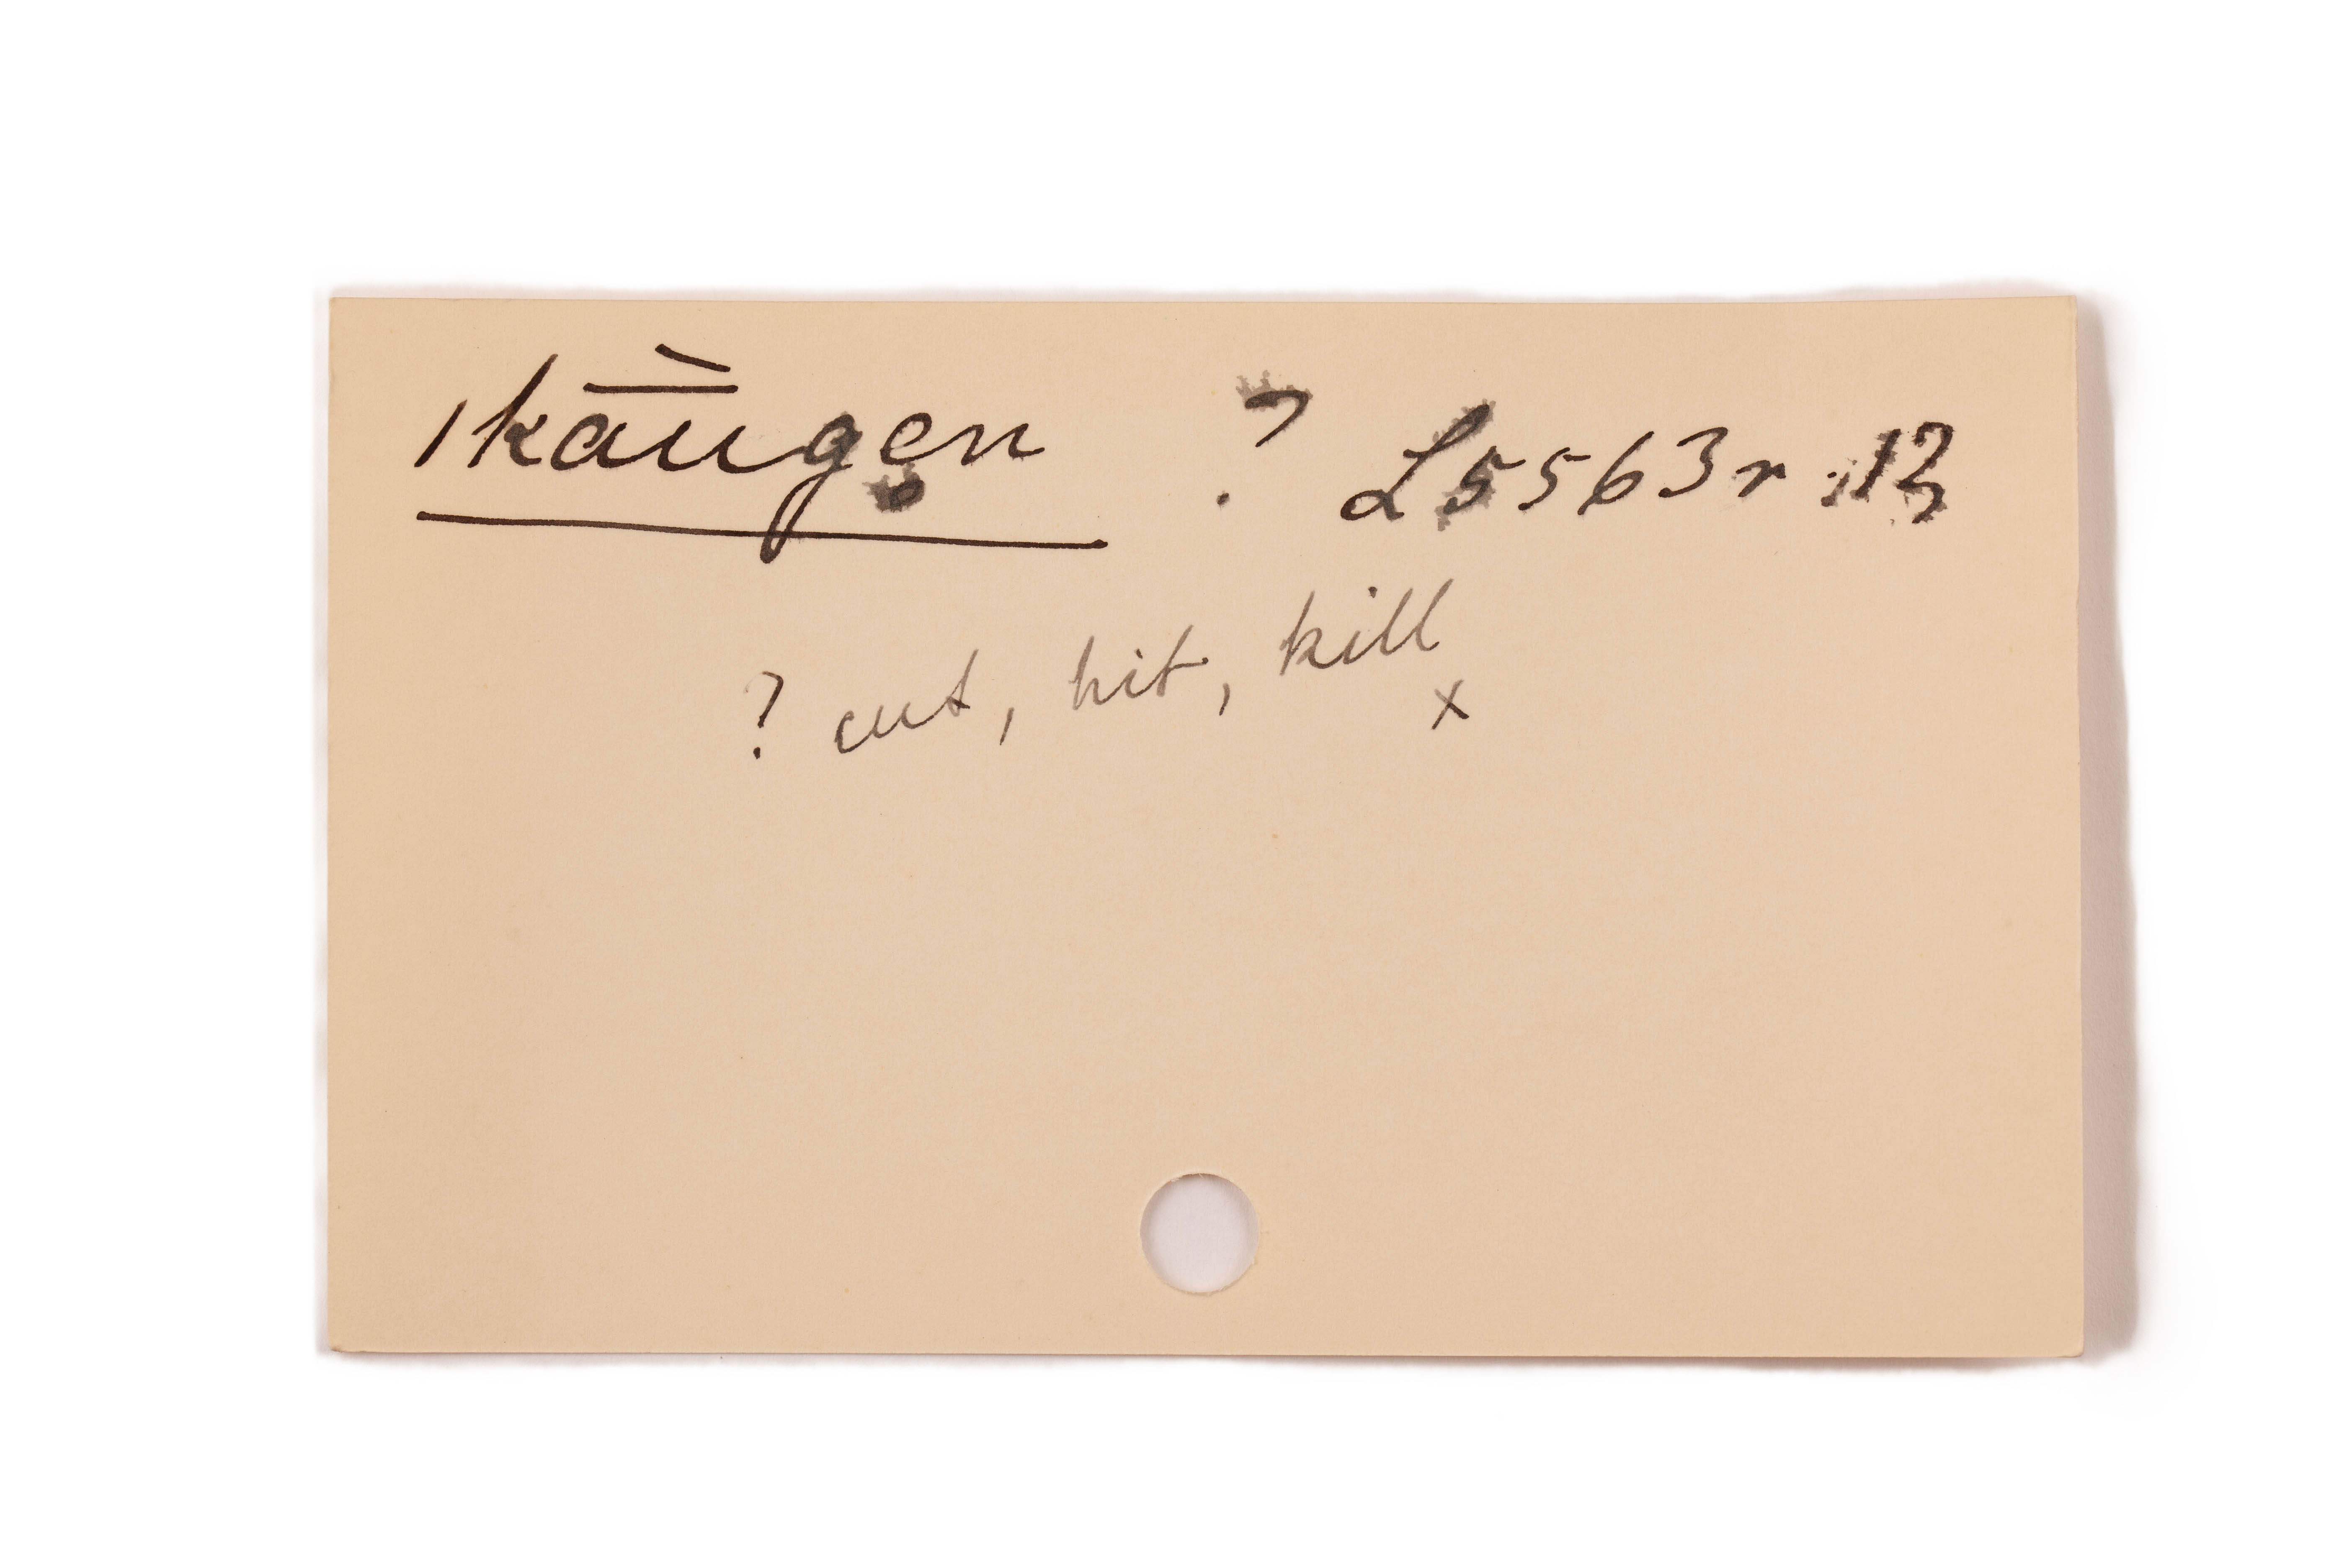 ǀkā̀ugen ? L5563r.12
? cut, hit, kill
x